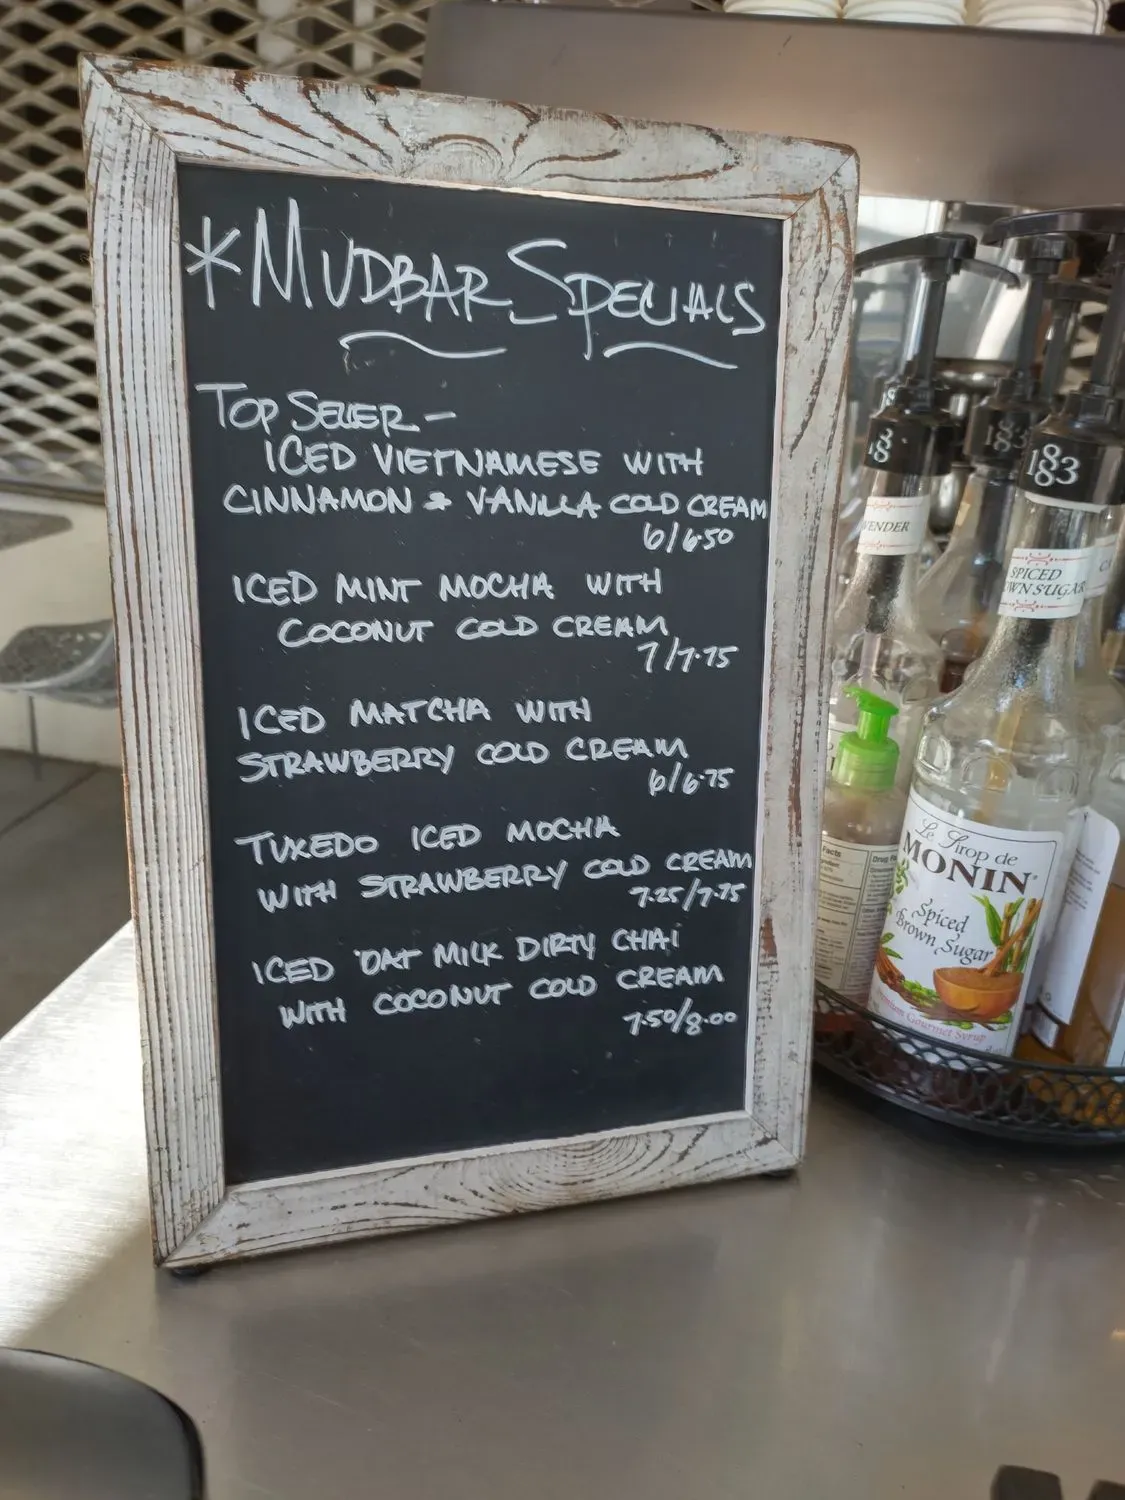 *MUDBAR SPECIALS
TOP SELLER -
ICED VIETNAMESE WITH
CINNAMON & VANILLA COLD CREAM
6/6.50
ICED MINT MOCHA WITH
COCONUT COLD CREAM
7/7.75
ICED MATCHA WITH
STRAWBERRY COLD CREAM
6/6.75
TUXEDO ICED MOCHA
WITH STRAWBERRY COLD CREAM
7.25/7.75
ICED OAT MILK DIRTY CHAI
WITH COCONUT COLD CREAM
7.50/8.00
183
183
VENDER
SPICED
WN SUGAR
Facts
Drug Fa
Le Sirop de
MONIN
Spiced
Brown Sugar
mium Gourmet Syrup